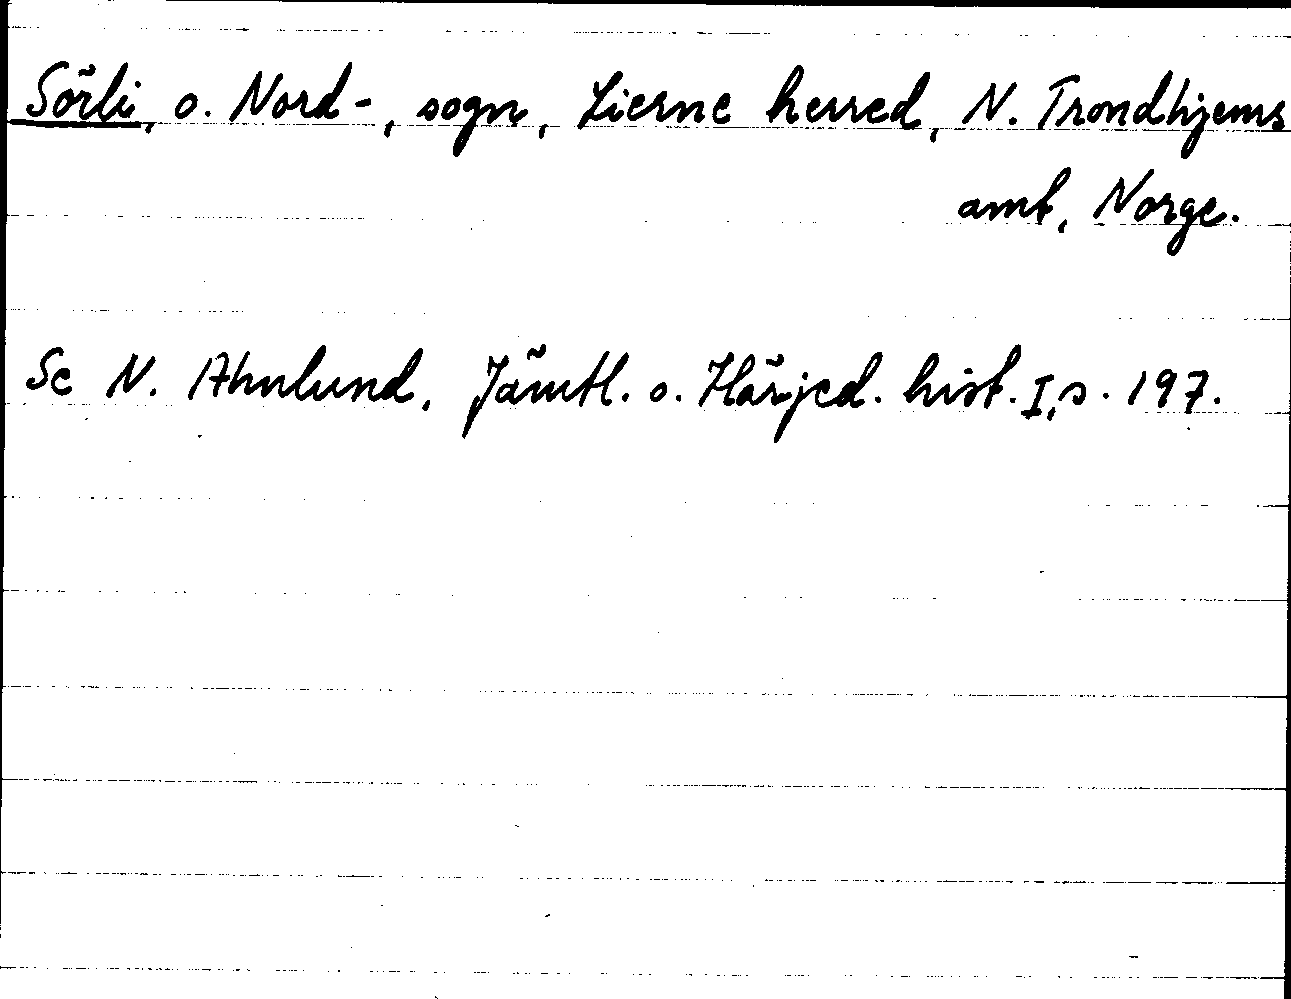 Sörli, o. Nord-, sogn, Lierne herred, N. Trondhjems
amt, Norge.
Se N. Ahnlund, Jämtl. o. Härjed. hist. I, s. 197.